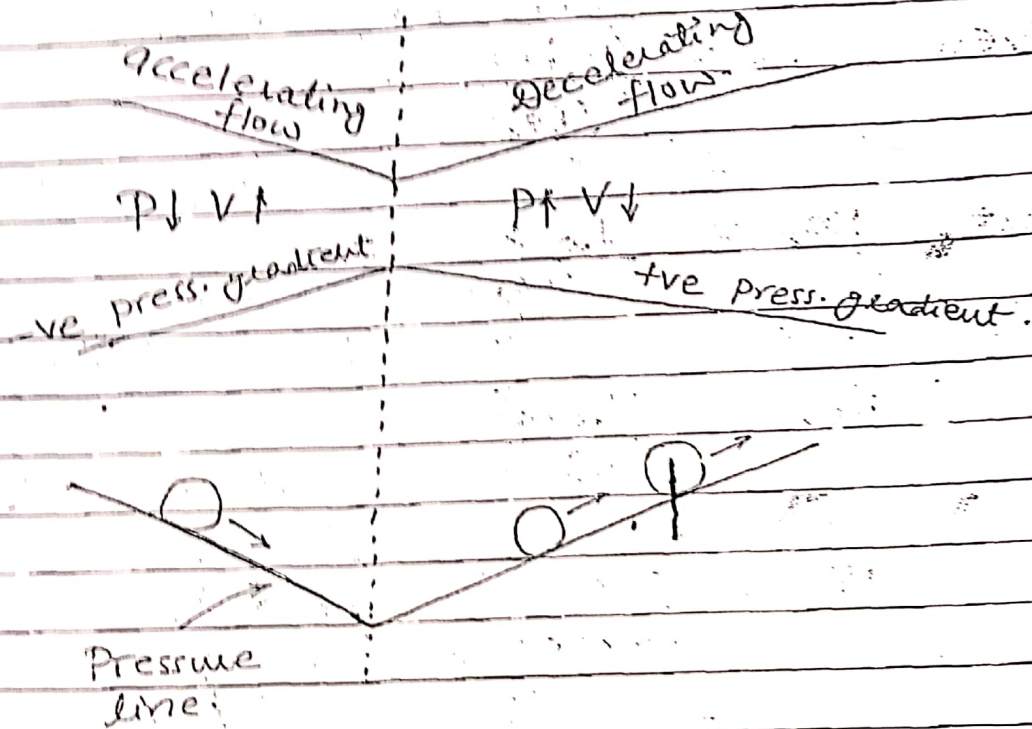 accelerating
flow
Decelerating
flow
P↓ V↑
P↑ V↓
-ve press. gradient
+ve press. gradient.
Pressure
line.